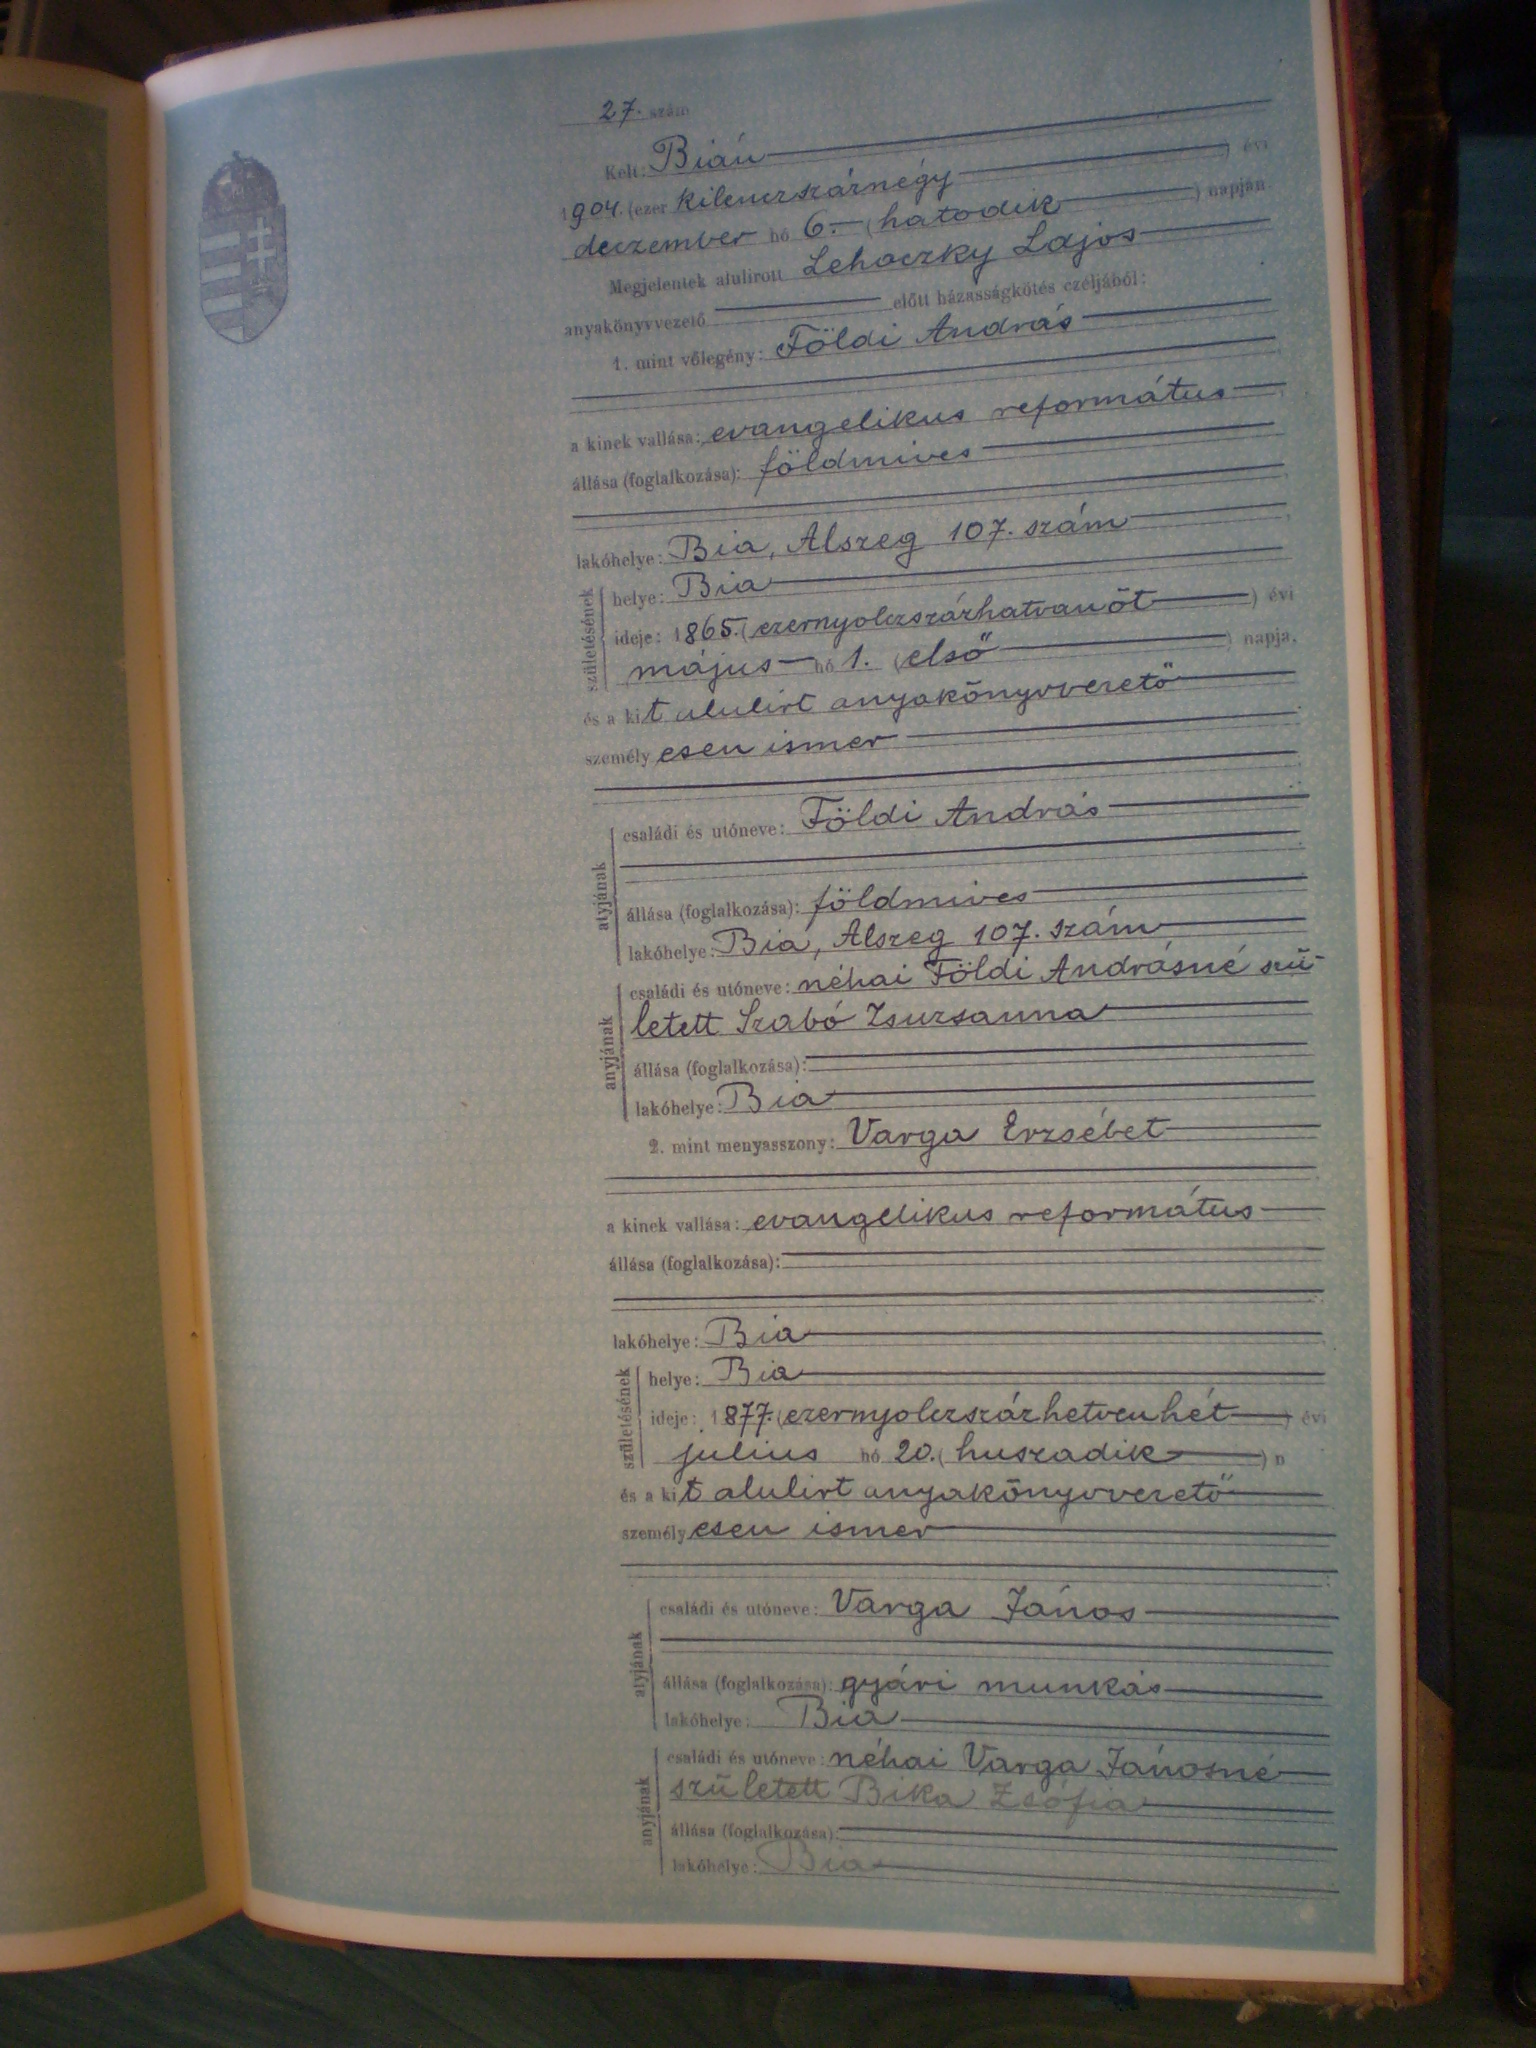 27. szám
Kelt: Bián
1904. (ezer kilenczszáznégy) évi
deczember hó 6. (hatodik) napján.
Megjelentek alulirott Lehoczky Lajos
anyakönyvvezető előtt házasságkötés czéljából:
1. mint vőlegény: Földi András
a kinek vallása: evangelikus református
állása (foglalkozása): földmives
lakóhelye: Bia, Alszeg 107. szám
születésének
helye: Bia
ideje: 1865. (ezernyolczszázhatvanöt) évi
május hó 1. (első) napja,
és a kit alulirt anyakönyvvezető
személyesen ismer
atyjának
családi és utóneve: Földi András
állása (foglalkozása): földmives
lakóhelye: Bia, Alszeg 107. szám
anyjának
családi és utóneve: néhai Földi Andrásné szü-
letett Szabó Zsuzsanna
állása (foglalkozása):
lakóhelye: Bia
2. mint menyasszony: Varga Erzsébet
a kinek vallása: evangelikus református
állása (foglalkozása):
lakóhelye: Bia
születésének
helye: Bia
ideje: 1877. (ezernyolczszázhetvenhét) évi
julius hó 20. (huszadik) n
és a kit alulirt anyakönyvvezető
személyesen ismer
atyjának
családi és utóneve: Varga János
állása (foglalkozása): gyári munkás
lakóhelye: Bia
anyjának
családi és utóneve: néhai Varga Jánosné
született Bika Zsófia
állása (foglalkozása):
lakóhelye: Bia